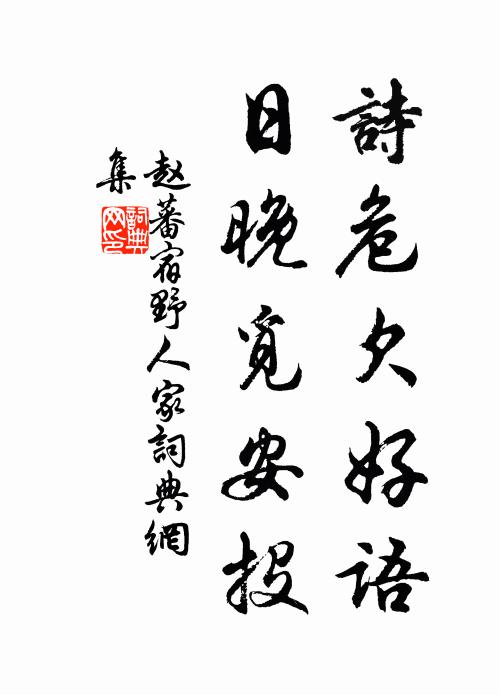 詩危欠好語
日晚覓安投
赵蕃宿野人家詞典網
集
詞典網印